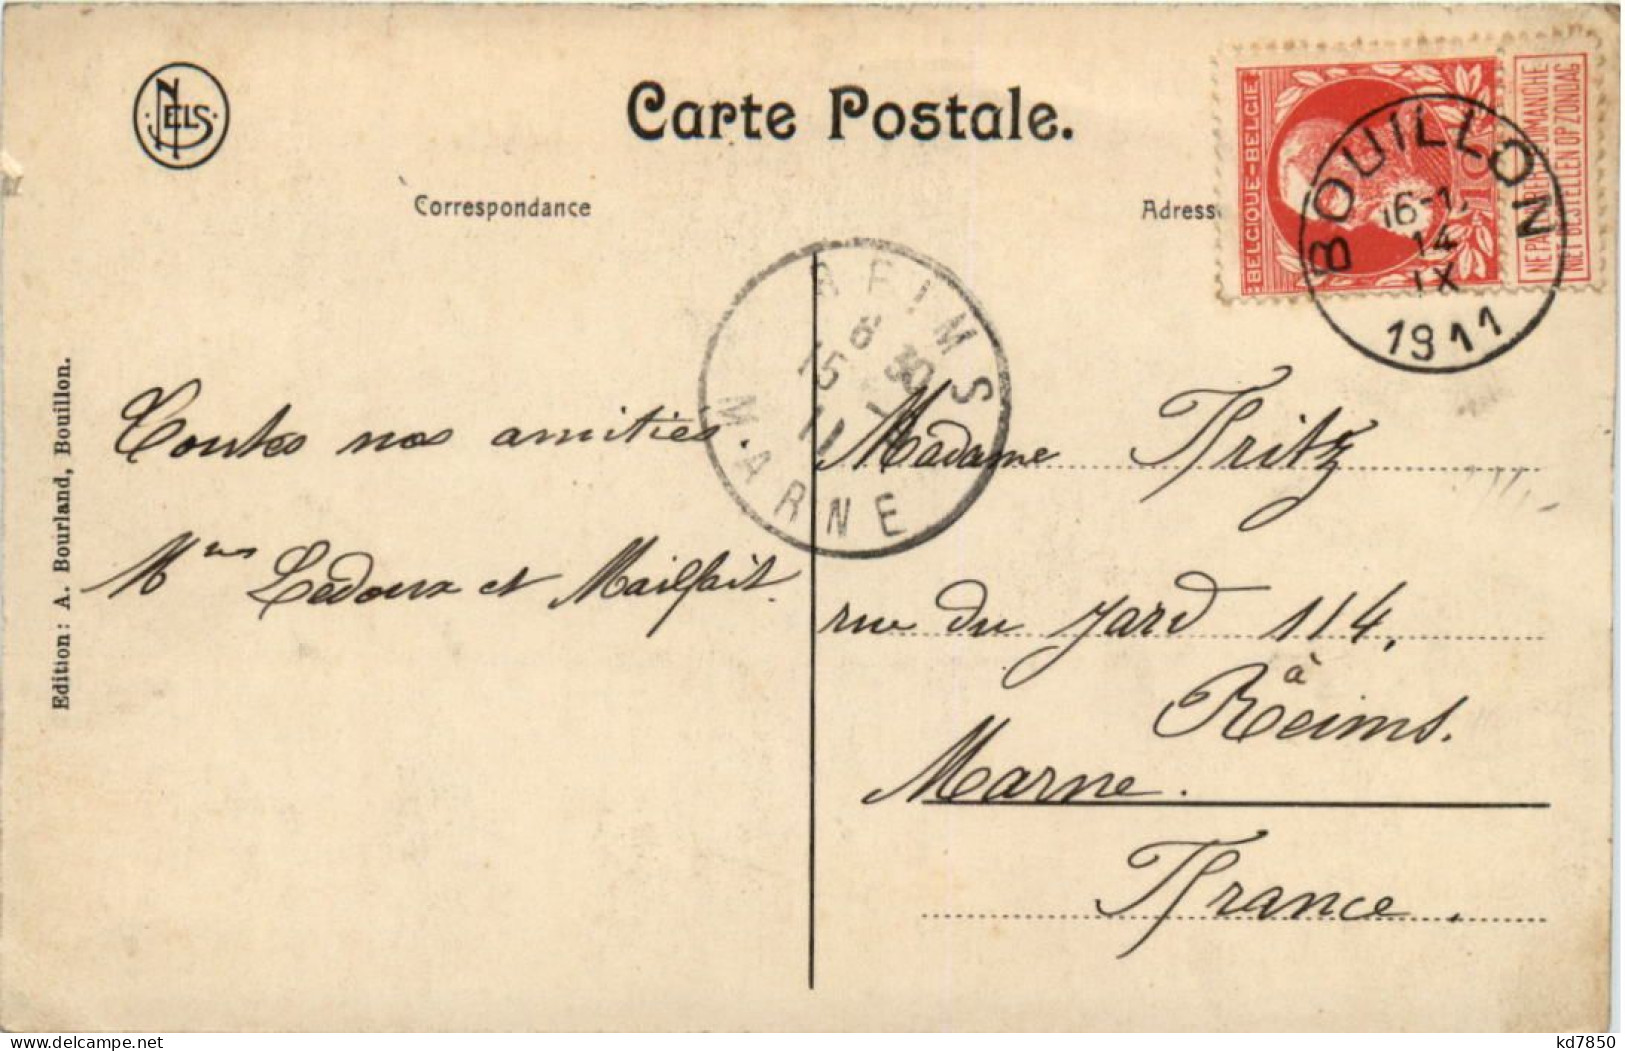 NELS
Carte Postale.
Correspondance
Adresse
BELGIQUE-BELGIE
10
NE PAS LIVRER LE DIMANCHE
NIET BESTELLEN OP ZONDAG
BOUILLON
14
IX
1911
REIMS
8 30
15
11
MARNE
Toutes nos amitiés.
Mmes Ledoux et Mailfait.
Madame Fritz
rue du Jard 114,
à
Reims.
Marne.
France.
Edition: A. Bourland, Bouillon.
kd7850